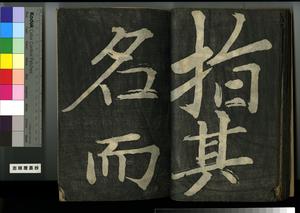 指其
名而